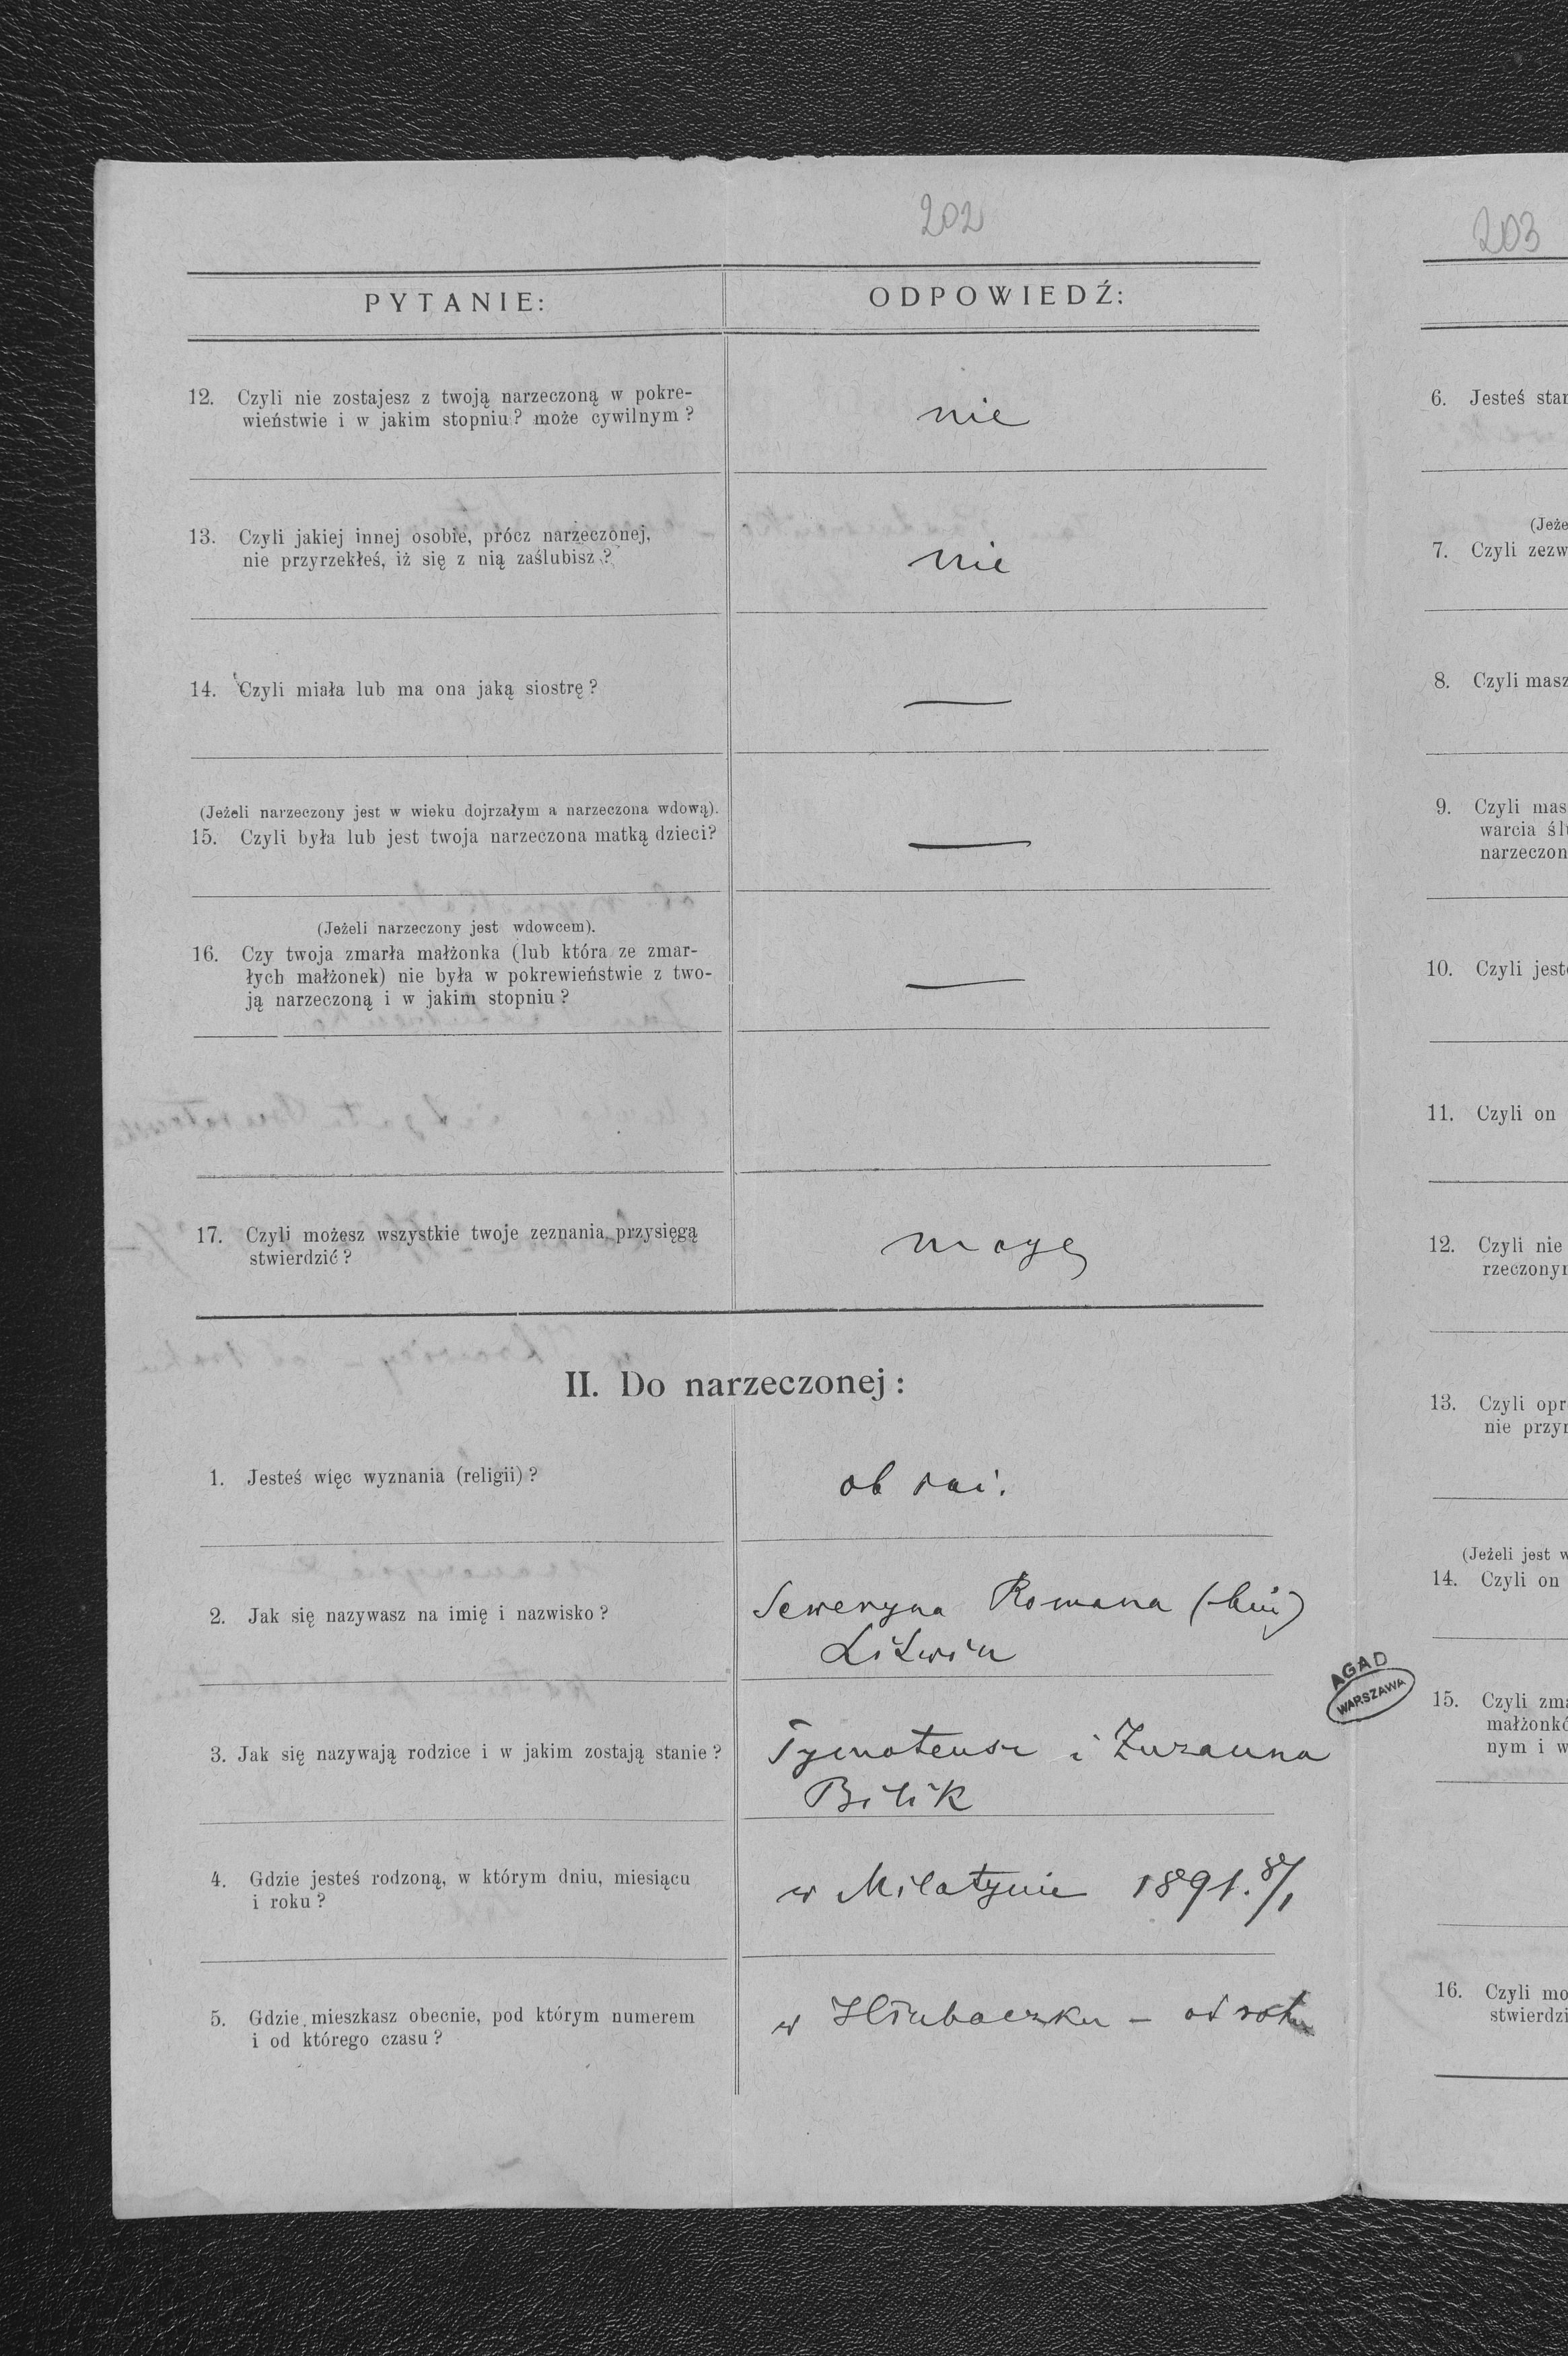 202
PYTANIE:
ODPOWIEDŹ:
12. Czyli nie zostajesz z twoją narzeczoną w pokre-
wieństwie i w jakim stopniu? może cywilnym?
nie
13. Czyli jakiej innej osobie, prócz narzeczonej,
nie przyrzekłeś, iż się z nią zaślubisz?
nie
14. Czyli miała lub ma ona jaką siostrę?
—
(Jeżeli narzeczony jest w wieku dojrzałym a narzeczona wdową).
15. Czyli była lub jest twoja narzeczona matką dzieci?
—
(Jeżeli narzeczony jest wdowcem).
16. Czy twoja zmarła małżonka (lub która ze zmar-
łych małżonek) nie była w pokrewieństwie z two-
ją narzeczoną i w jakim stopniu?
—
17. Czyli możesz wszystkie twoje zeznania, przysięgą
stwierdzić?
mogę
II. Do narzeczonej:
1. Jesteś więc wyznania (religii)?
ob
2. Jak się nazywasz na imię i nazwisko?
Seweryna Romana
Litwin
3. Jak się nazywają rodzice i w jakim zostają stanie?
Tymoteusz i Zuzanna
Bilik
4. Gdzie jesteś rodzoną, w którym dniu, miesiącu
i roku?
w Milatynie 1891. 8/1
5. Gdzie mieszkasz obecnie, pod którym numerem
i od którego czasu?
w Hłuboczku — od roku
AGAD
WARSZAWA
203
6. Jesteś star
(Jeże
7. Czyli zezw
8. Czyli masz
9. Czyli mas
warcia śl
narzeczon
10. Czyli jest
11. Czyli on
12. Czyli nie
rzeczony
13. Czyli opr
nie przyr
(Jeżeli jest w
14. Czyli on
15. Czyli zma
małżonkó
nym i w
16. Czyli mo
stwierdzi